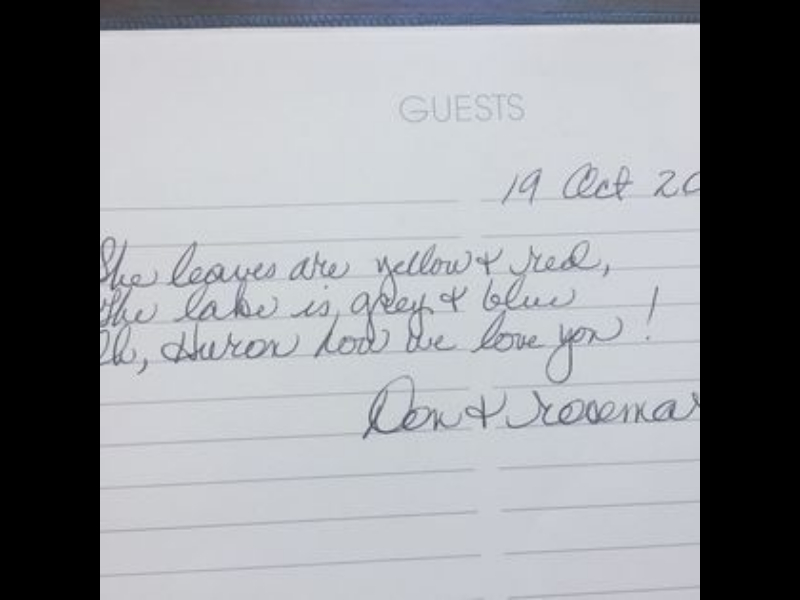 GUESTS
19 Oct 20
The leaves are yellow & red,
The lake is grey & blue
Oh, Huron how we love you!
Don & rosemar